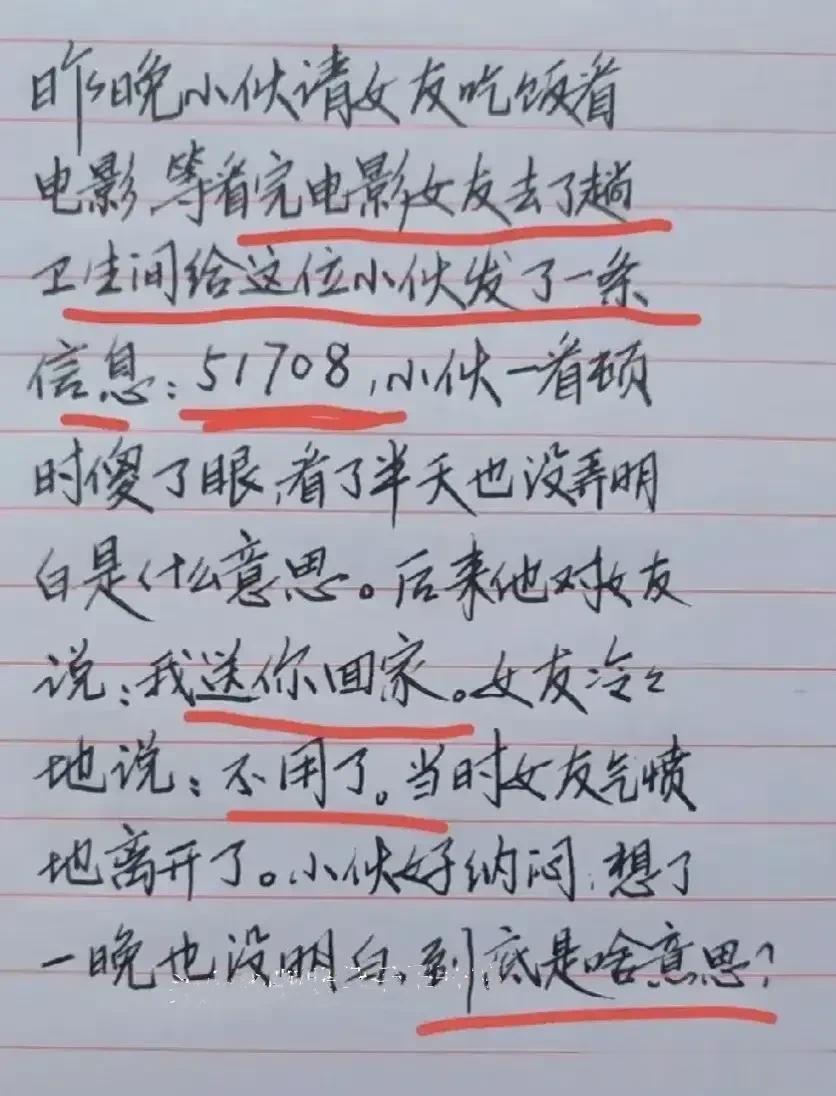 昨晚小伙请女友吃饭看
电影,等看完电影女友去了趟
卫生间给这位小伙发了一条
信息:51708,小伙一看顿
时傻了眼,看了半天也没弄明
白是什么意思。后来他对女友
说:我送你回家。女友冷々
地说:不用了。当时女友气愤
地离开了。小伙好纳闷,想了
一晚也没明白,到底是啥意思?